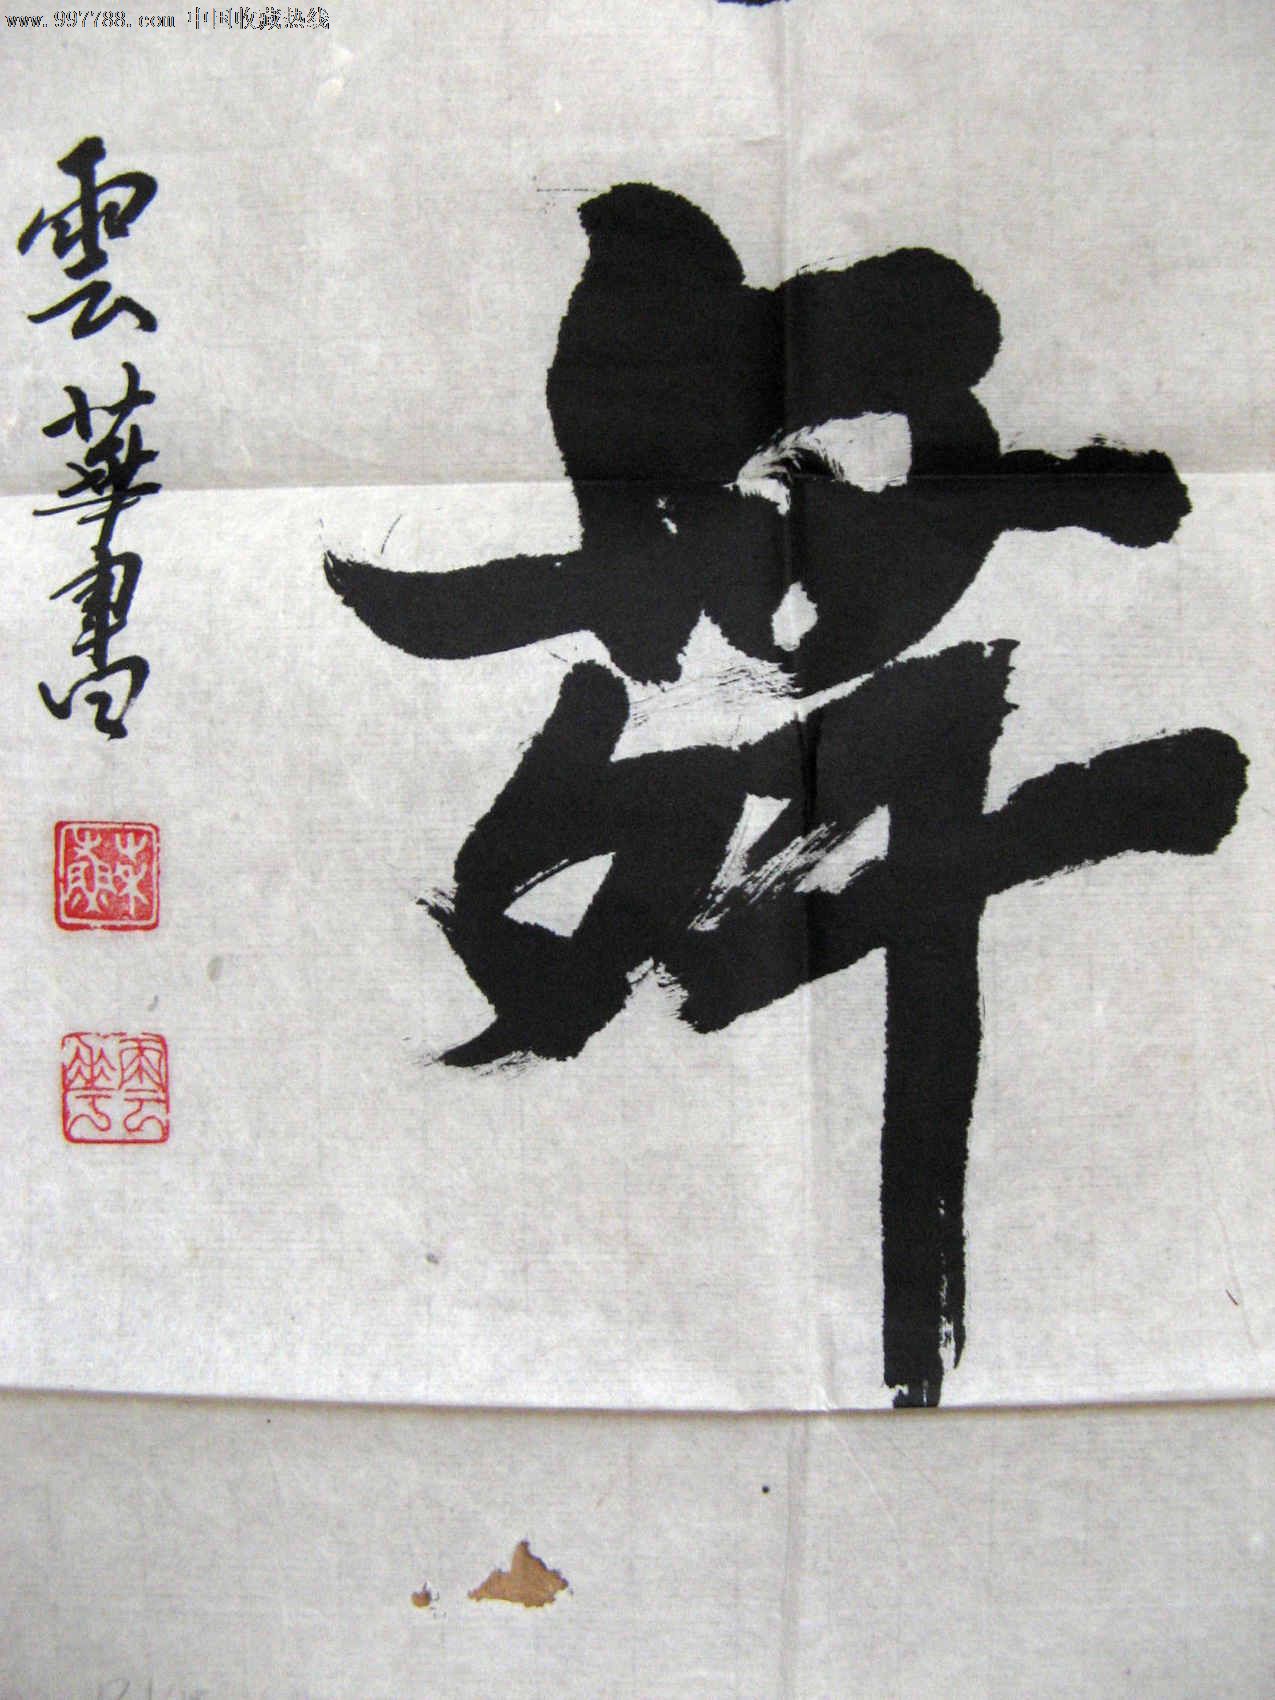 www.997788.com 中国收藏热线
舞
雲華書
蘇
雲華